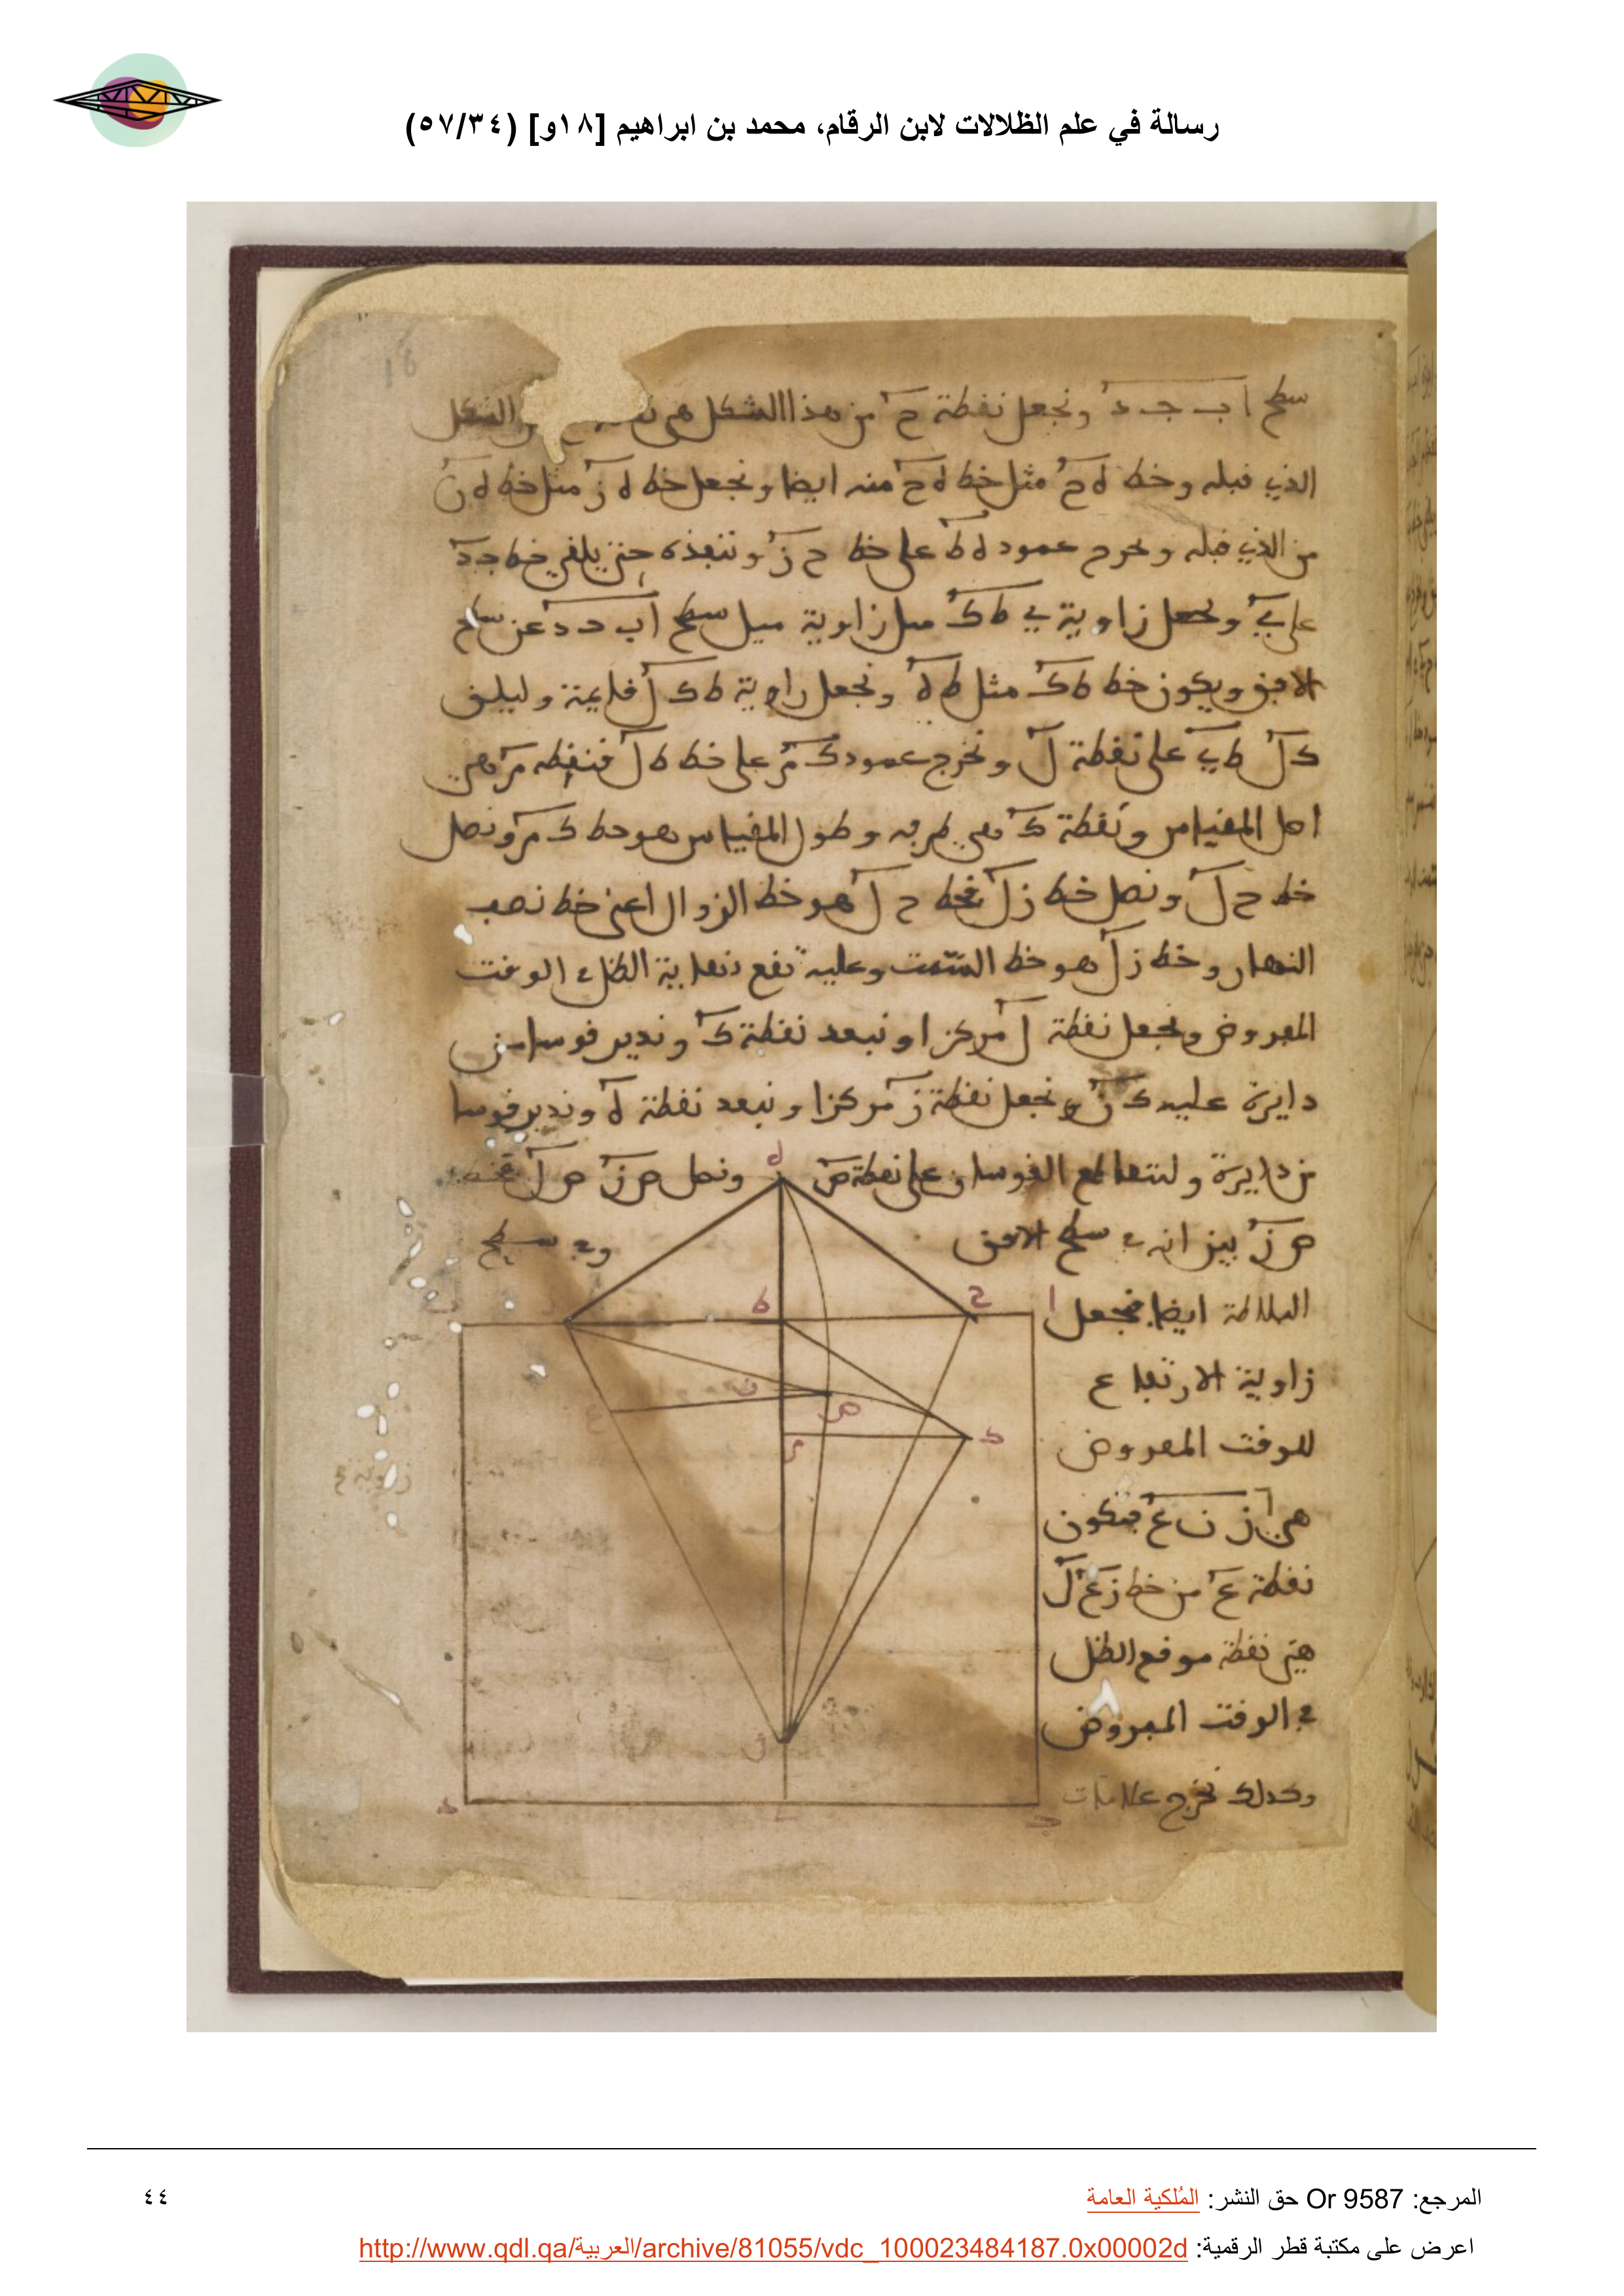 رسالة في علم الظلالات لابن الرقام، محمد بن ابراهيم [١٨و] (٥٧/٣٤)
سطح ا ب ج د ونجعل نقطة ح من هذا الشكل هي الشكل
الذي قبله وخط ه ح مثل خط ه ح منه ايضا ونجعل خط ه ز مثل خط ه ن
من الذي قبله ونخرج عمود ه ط على خط ح ز وننفذه حتى يلقى خط ج د
على ي ونجعل زاوية ي ط ك مثل زاوية ميل سطح ا ب ج د عن سطح
الافق ويكون خط ط ك مثل ط ه ونجعل زاوية ط ك ل قايمة وليلق
ك ل ط ي على نقطة ل ونخرج عمود ك م على خط ط ل فنقطة م هي
اصل المقياس ونقطة ك هي طرفه وطول المقياس هو خط ك م ونصل
خط ح ل ونصل خط ز ل فخط ح ل هو خط الزوال اعني خط نصف
النهار وخط ز ل هو خط السمت وعليه تقع نهاية الظل في الوقت
المفروض ونجعل نقطة ل مركزا وببعد نقطة ك وندير قوسا من
دايرة عليه ك ن ونجعل نقطة ز مركزا وببعد نقطة ه وندير قوسا
من دايرة وليتقاطع القوسان على نقطة ص ونصل ص ز ص ل فخط
ص ز بين انه في سطح الافق وفي سطح
البلاطة ايضا فنجعل
زاوية الارتفاع
للوقت المفروض
هي ز ن ع فتكون
نقطة ع من خط ز ع ل
هي نقطة موقع الظل
في الوقت المفروض
وكذلك نخرج علامات
ه
ا
ح
ط
ن
ع
ص
ك
م
ل
د
ج
18
المرجع: Or 9587 حق النشر: المُلكية العامة
٤٤
اعرض على مكتبة قطر الرقمية: http://www.qdl.qa/العربية/archive/81055/vdc_100023484187.0x00002d